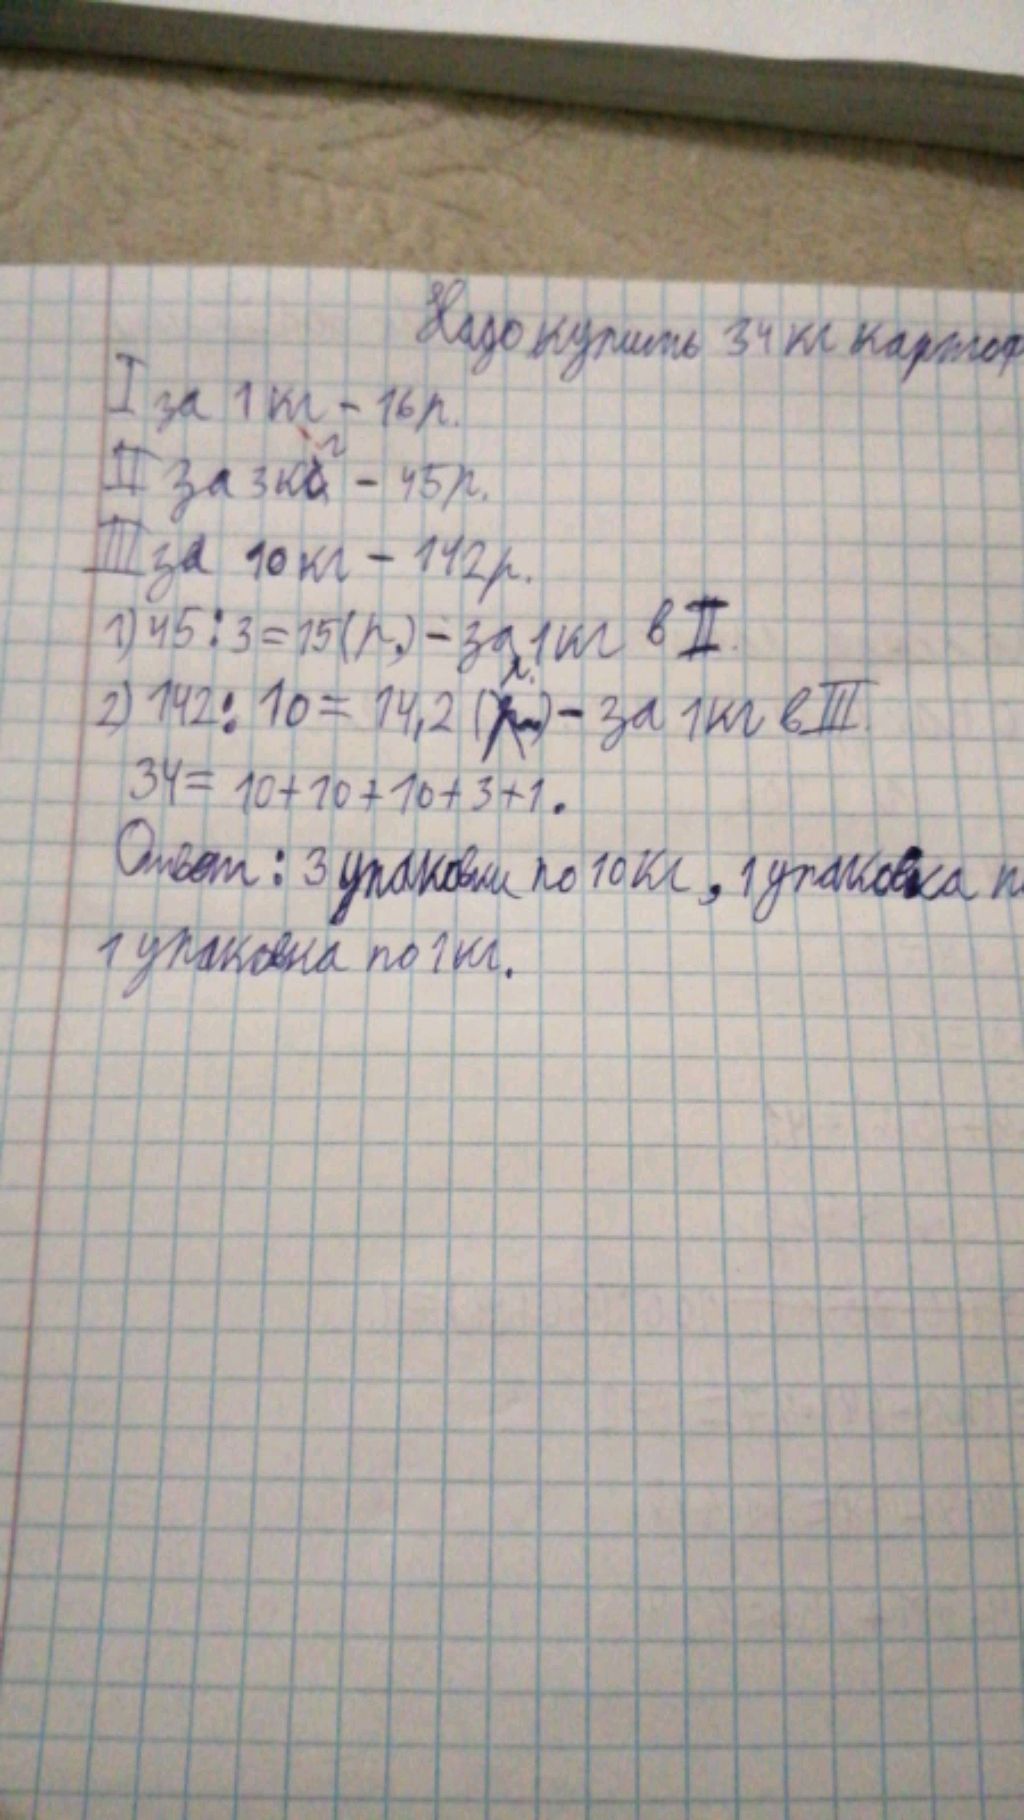 Надо купить 34 кг картоф
I за 1 кг - 16 р.
II за 3 кг - 45 р.
III за 10 кг - 142 р.
1) 45 : 3 = 15 (р.) - за 1 кг в II.
2) 142 : 10 = 14,2 (р.) - за 1 кг в III.
34 = 10 + 10 + 10 + 3 + 1.
Ответ: 3 упаковки по 10 кг, 1 упаковка п
1 упаковка по 1 кг.